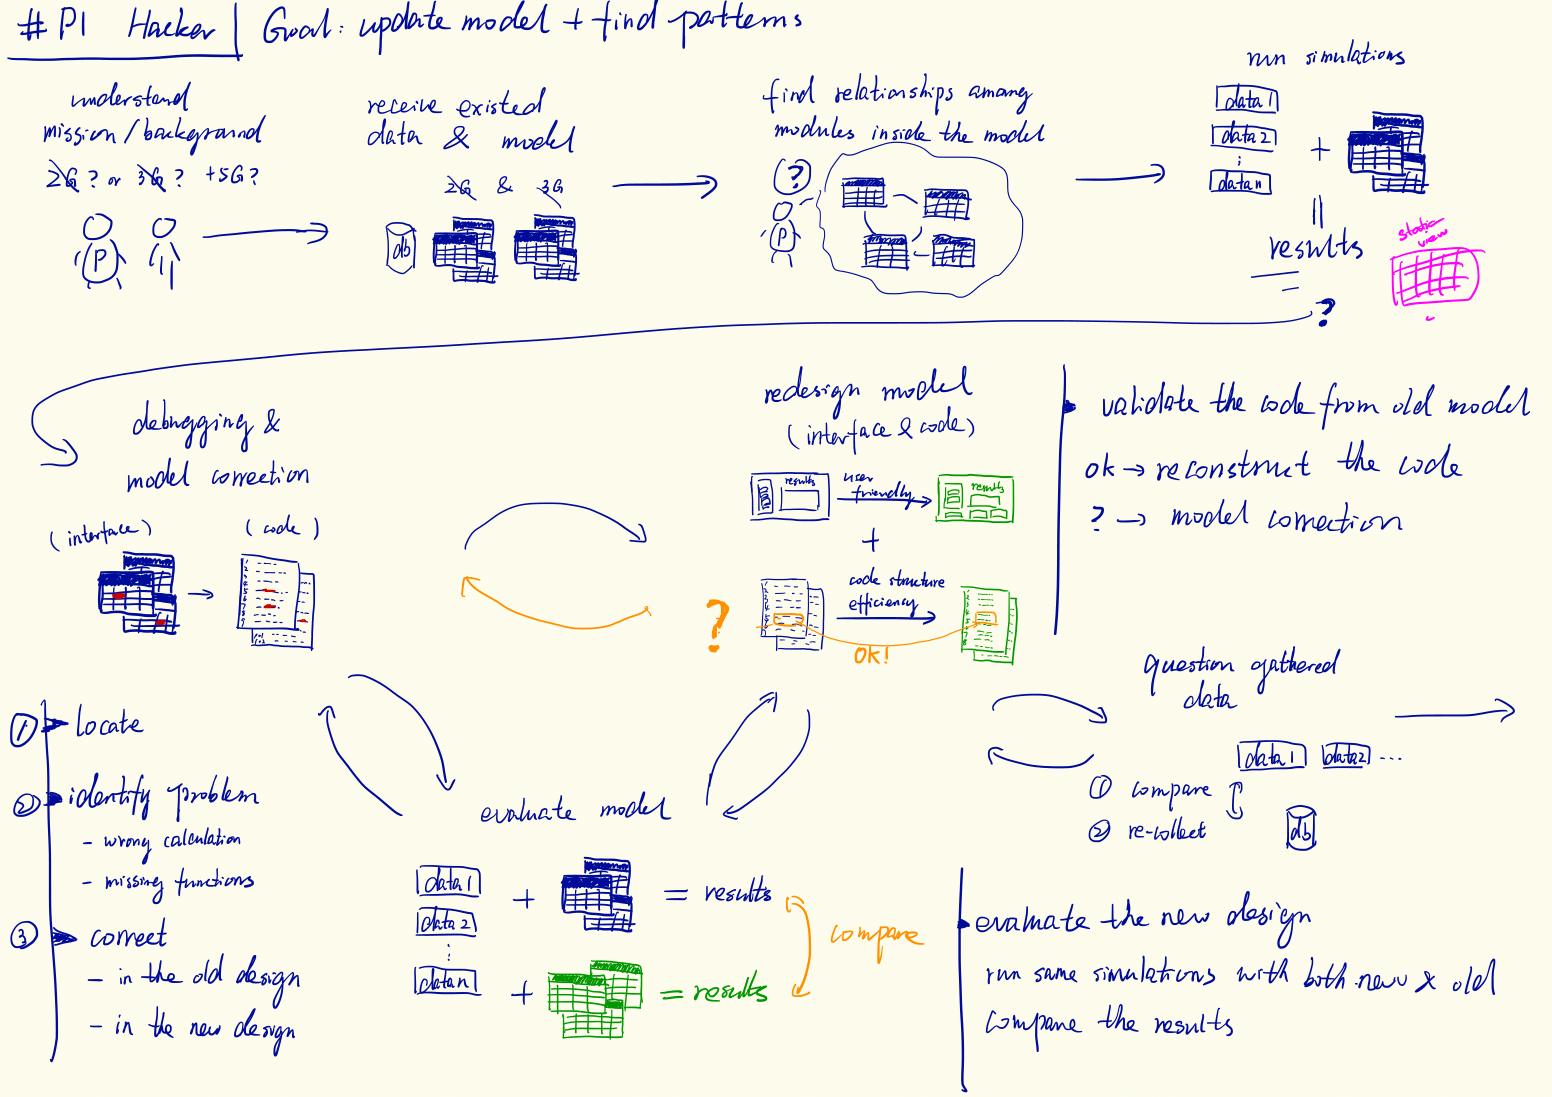 #P1 Hacker | Goal: update model + find patterns
understand
mission/background
2G? or 3G? +5G?
P
receive existed
data & model
2G & 3G
db
find relationships among
modules inside the model
?
P
run simulations
data1
data2
⋮
datan
+
||
results
static
view
?
debugging &
model correction
(interface)
(code)
redesign model
(interface & code)
results
user
friendly
results
+
code structure
efficiency
?
OK!
validate the code from old model
ok → reconstruct the code
? → model correction
question gathered
data
data1 data2 ...
① compare
② re-collect
db
① locate
② identify problem
- wrong calculation
- missing functions
③ correct
- in the old design
- in the new design
evaluate model
data1
data2
⋮
datan
+ = results
+ = results
compare
evaluate the new design
run same simulations with both new & old
compare the results